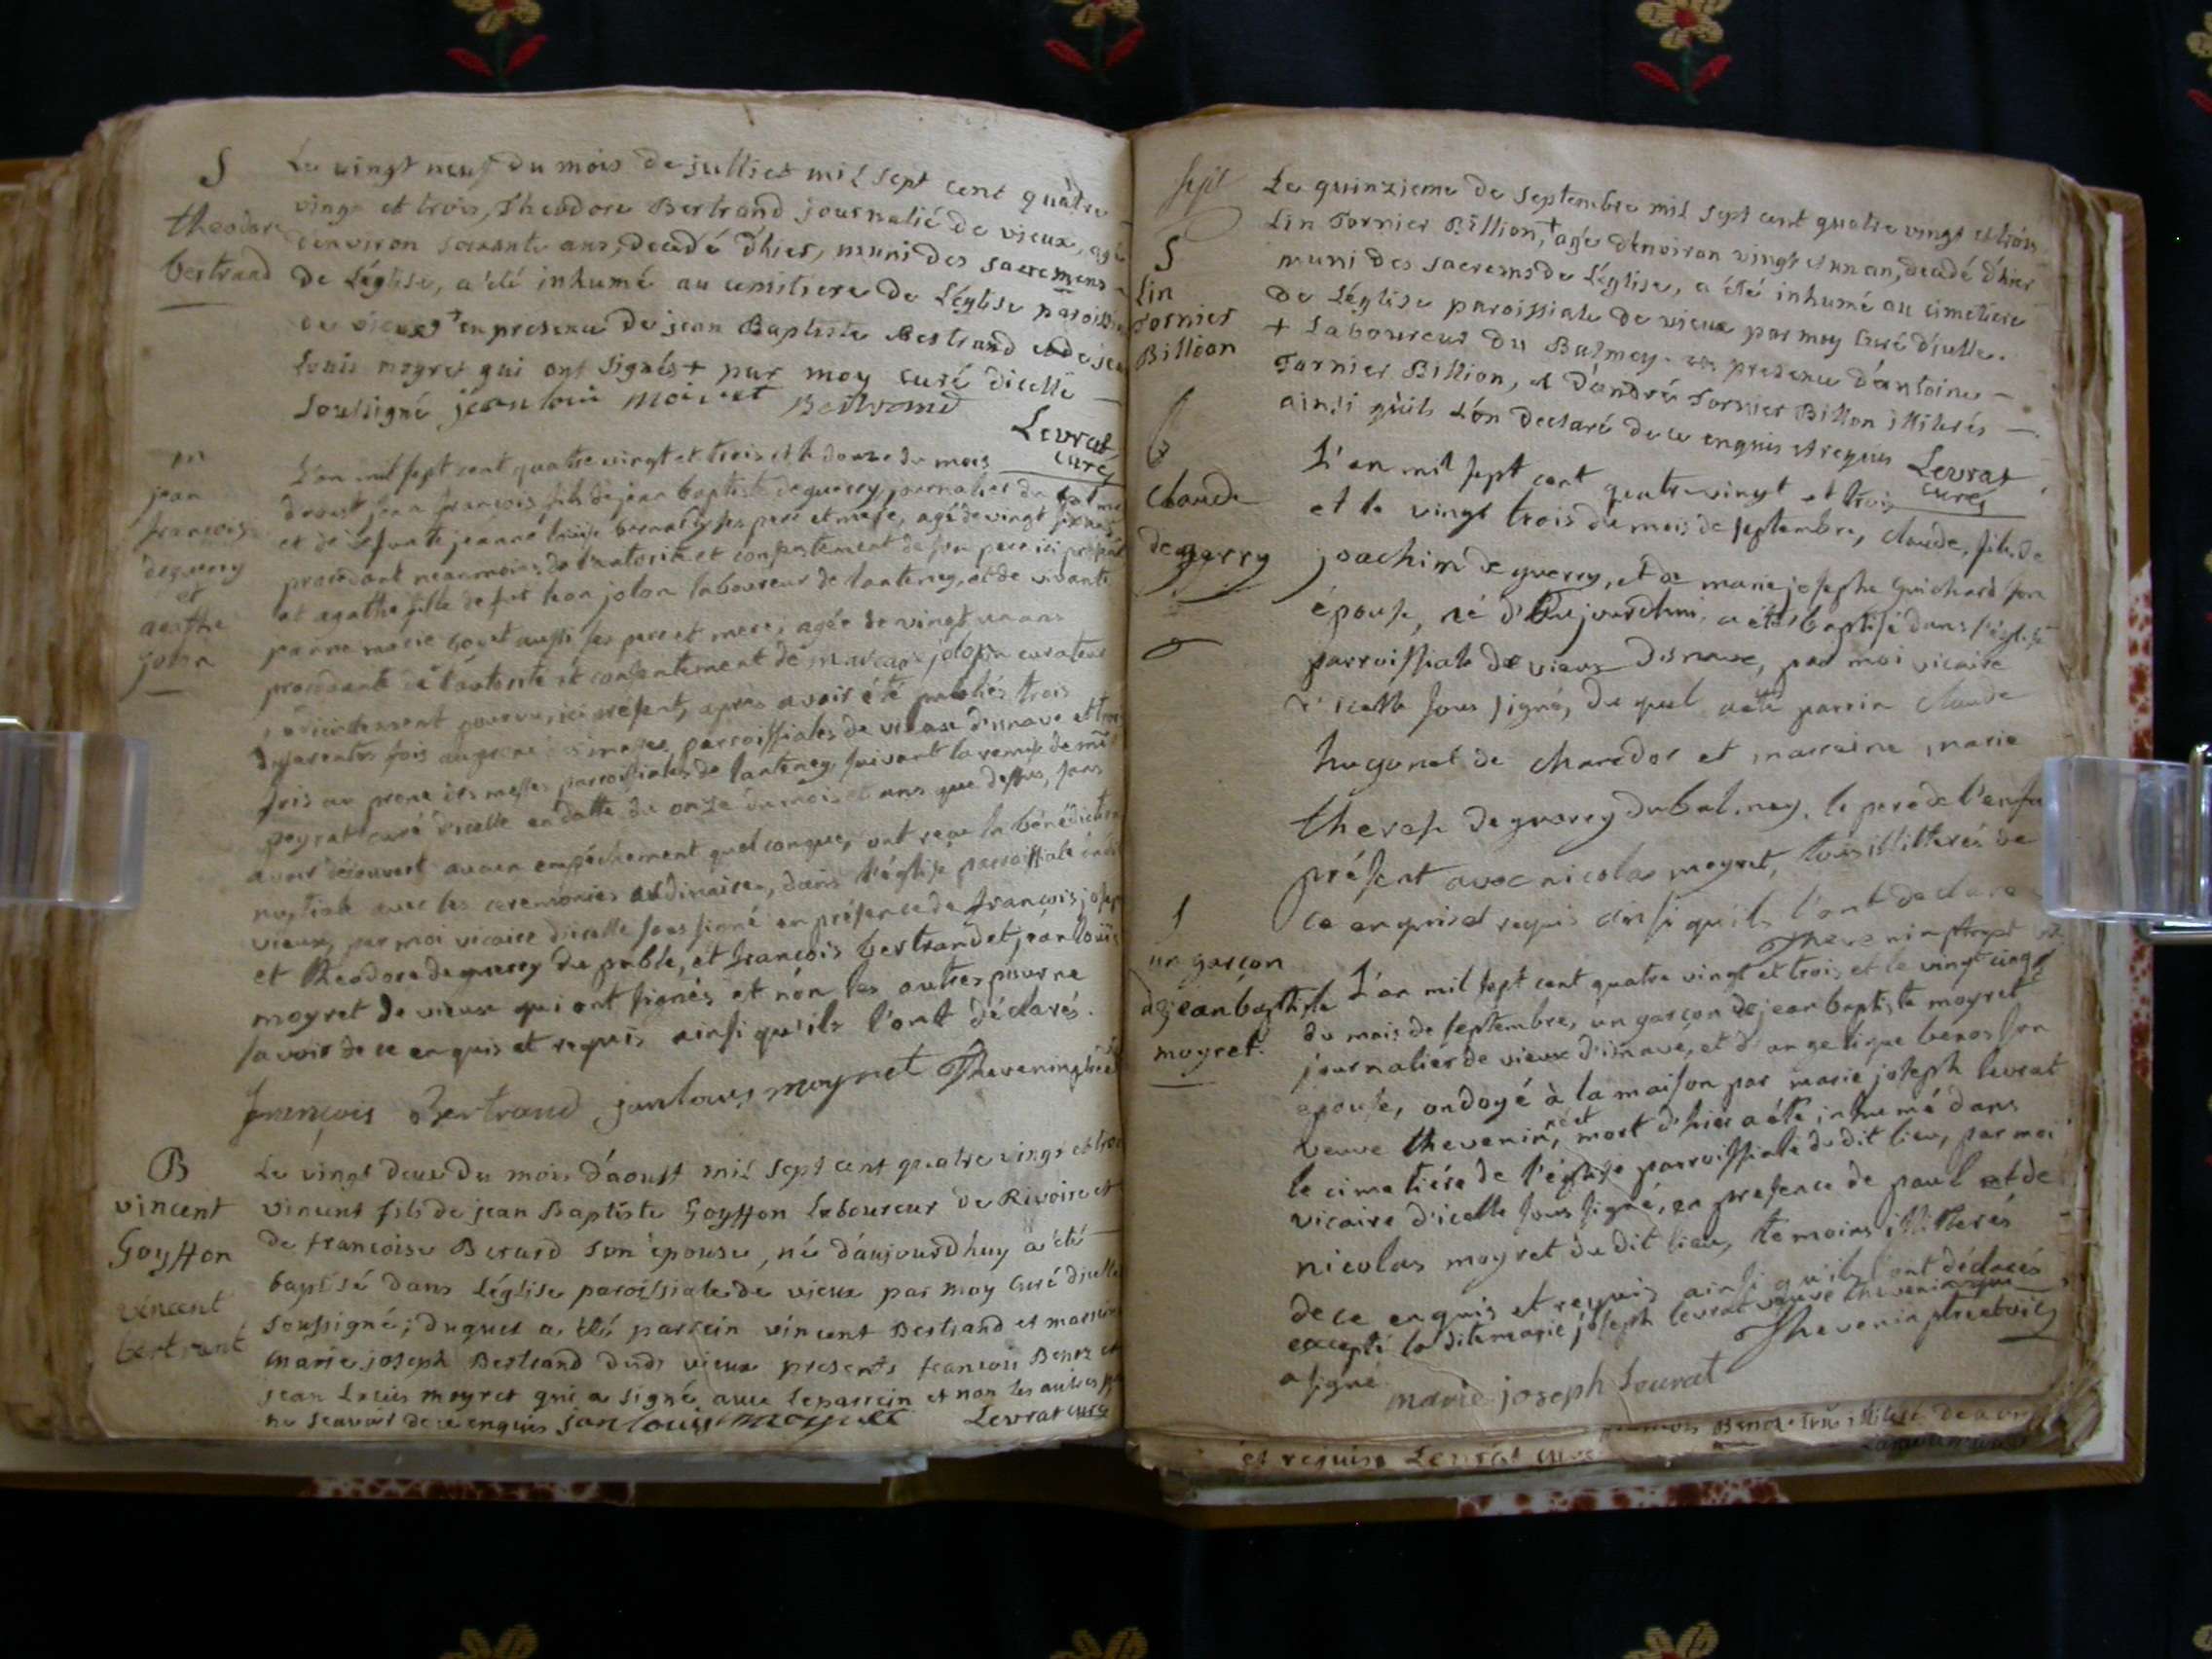 S
theodore
bertrand
Le vingt neuf du mois de julliet mil sept cent quàtre
vingt et trois, Theodore Bertrand journalié de vieux, agé
d'environ soixante ans, decedé d'hier, muni des sacremens
de L'église, a été inhumé au cemitiere de L'église paroissi
de vieux + en presence de jean Baptiste Bertrand et de jea
Louis moyret qui ont signés + par moy curé d'icelle
soussigné jean loui moiret Bertrand
Levrat
curé
m
jean
françois
deguerry
et
agathe
jolon
L'an mil sept cent quatre vingt et trois et le douze du mois
d'aoust jean françois fils de jean baptiste deguerry journalier du balme
et de defunte jeanne louise ses pere et mere, agé de vingt
procedant neanmoins de l'autorité et consentement de son pere ici présent
et agathe fille de feu jolon laboureur de lanteney, et de vivante
jeanne marie aussi ses pere et mere, agée de vingt un ans
procedante de l'autorité et consentement de jolon curateur
pourvu, ici present, apres avoir été publiés trois
differentes fois au prone des messes parroissiales de vieux d'isnave et trois
fois au prone des messes parroissiales de lanteney, suivant la remise de
peyrat curé d'icelle en datte du onze du mois et ans que dessus, sans
avoir découvert aucun empêchement quelconque, ont reçue la bénédiction
nuptiale avec les ceremonies ordinaires, dans l'église parroissiale
vieux, par moi vicaire d'icelle sous signé en présence de françois josep
et theodore deguerry du poble, et françois bertrand et jean louis
moyret de vieux qui ont signés et nón les autres pour ne
savoir de ce enquis et requis ainsi qu'ils l'ont déclarés.
françois Bertrand janlouis moyret Thevenin
B
vincent
Goyffon
vincent
bertrant
Le vingt deux du mois d'aoust mil sept cent quatre vingt et trois
vincent fils de jean Baptiste Goyffon Laboureur de Rivoire et
de françoise Berard son épouse, né d'aujourd'huy a été
baptisé dans L'église paroissiale de vieux par moy curé d'icelle
soussigné; duquel a été parrein vincent Bertrand et marreine
marie joseph Bertrand dudt vieux presents françois Benoz et
jean Louis moyret qui a signé avec le parrein et non les autres p
ne scavoir de ce enquis jan louis moyret Levrat curé
sept
S
Lin
Tornier
Billion
Le quinzieme de septembre mil sept cent quatre vingt et trois
Lin Tornier Billion,+ agé d'environ vingt et un an, decedé d'hier
muni des sacremens de L'église, a été inhumé au cimetiere
de L'église paroissiale de vieux par moy curé d'icelle.
+ Laboureur du Balmey. en presence d'antoine
Tornier Billion, et d'andré Tornier Billion illiterés
ainsi qu'ils L'on declaré de ce enquis et requis Levrat
curé
b
claude
deguerry
L'an mil sept cent quatre vingt et trois
et le vingt trois du mois de septembre, claude, fils de
joachim deguerry, et de marie josephe Guichard son
épouse, né d'aujourd'hui, a été baptisé dans l'église
parroissiale de vieux d'isnave, par moi vicaire
d'icelle sous signé, du quel a été parrin claude
hugonet de charedor et marraine marie
therese deguerry du balmey, le pere de l'enfa
présent avec nicolas moyret, tous illitterés de
ce enquis et requis ainsi qu'ils l'ont declaré
Thevenin
S
un garçon
de jean baptiste
moyret.
L'an mil sept cent quatre vingt et trois et le vingt cinq
du mois de septembre, un garçon de jean baptiste moyret
journalier de vieux d'isnave, et d'angelique benoz son
epouse, ondoyé à la maison par marie joseph levrat
veuve thevenin, né et mort d'hier a été inhumé dans
le cimetiére de l'église parroissiale du dit lieu, par moi
vicaire d'icelle sous signé, en presence de paul et de
nicolas moyret du dit lieu, temoins illitterés
de ce enquis et requis ainsi qu'ils l'ont déclarés
excepté la dite marie joseph levrat veuve thevenin qui
a signé. Thevenin ptre et vic
marie joseph Levrat
et requis Levrat curé